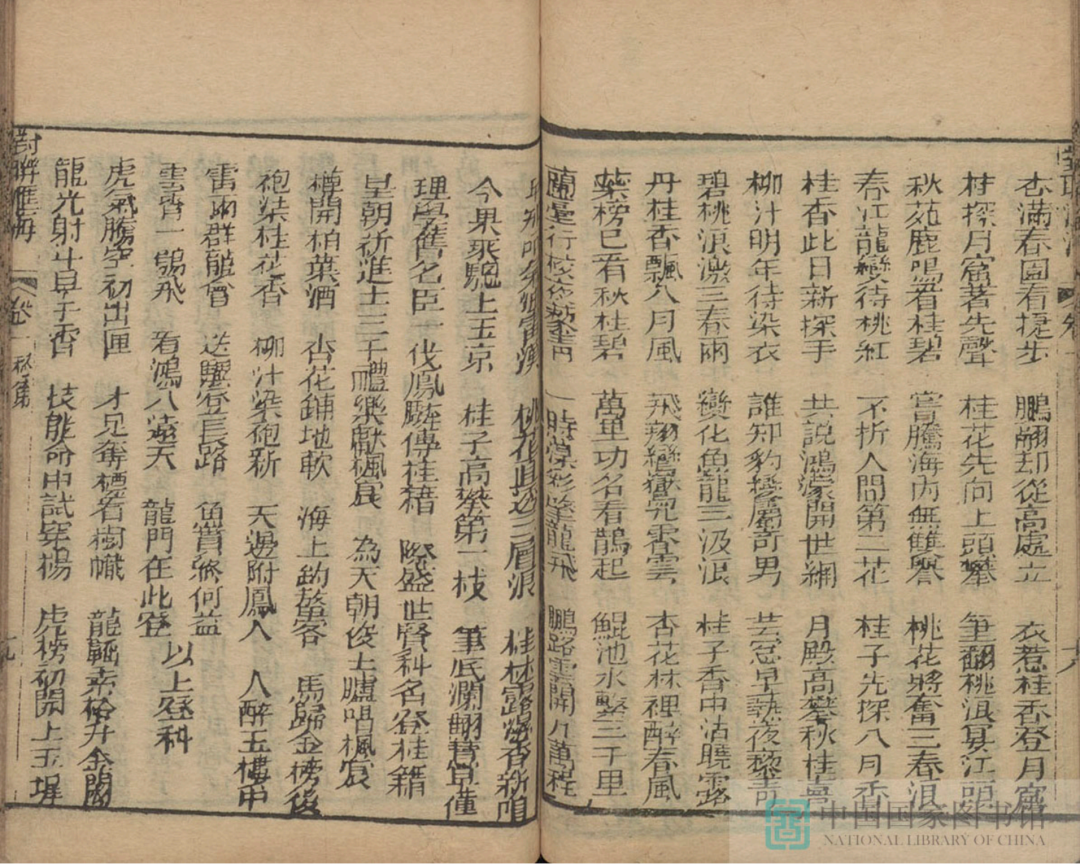 杏滿春園有捷步 鵬翮却從高處立 衣惹桂香登月窟
桂探月窟著先聲 桂花先向上頭攀 筆翻桃浪冥江頭
秋苑鹿鳴看桂碧 嘗騰海內無雙譽 桃花將奮三春浪
春江龍變待桃紅 不折人間第二花 桂子先探八月香
桂香此日新探手 共說鴻濛開世網 月殿高攀秋桂
柳汁明年待染衣 誰知豹變屬奇男 芸窓早熟夜藜青
碧桃浪激三春雨 變化魚龍三汲浪 桂子香中沾曉露
丹桂香飄八月風 飛翔鸞鶴 杏花林裡醉春風
蕊榜已看秋桂碧 萬里功名看鵲起 鯤池水擊三千里
一時 龍飛 鵬路雲開九萬程
桃花 三層浪 桂林露
今果乘驄上玉京 桂子高攀第一枝 筆底瀾翻
理學舊名臣一伐鳳麟傳桂籍 際盛世賢科名登桂籍
早朝新進士三千禮樂獻楓宸 為天朝俊士臚唱楓宸
樽開柏葉酒 杏花鋪地軟 海上釣鰲客 馬歸金榜後
袍染桂花香 柳汁染袍新 天邊附鳳人 人醉玉樓中
雷雨群龍會 送驥登長路 魚寶終何益
雲霄一鶚飛 看鴻入遠天 龍門在此登 以上登科
虎氣騰空初出匣 才見奪標看樹幟 龍 金闕
龍光射斗早子香 技能命中試穿楊 虎榜初開上玉墀
對聯匯海 卷 秋集
中国国家图书馆
NATIONAL LIBRARY OF CHINA